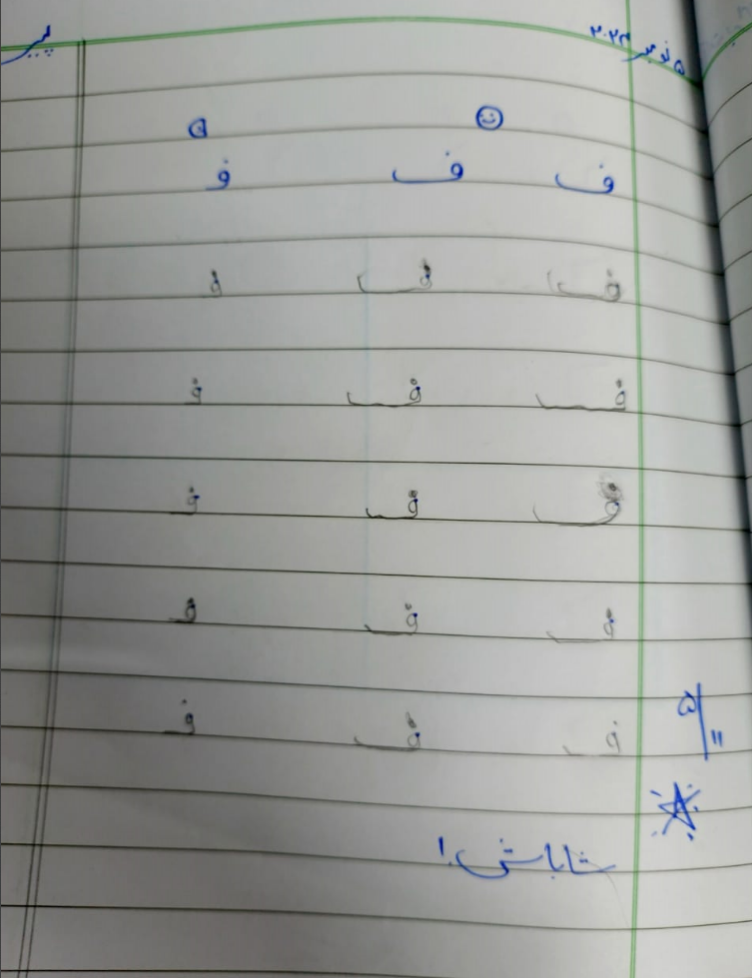 ۵ نومبر ۲۰۲۴ پیر
ف ف ف
ف ف ف
ف ف ف
ف ف ف
ف ف ف
ف ف ف
۵/۱۱
شاباش!